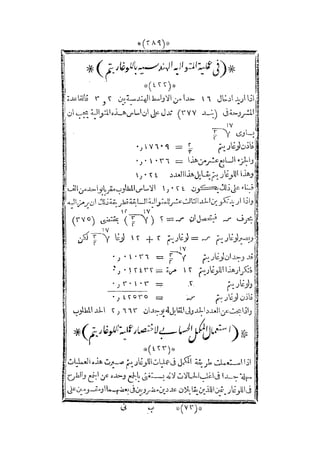 *(٢٨٩)*
*(فى عملية المتواليه الهندسية باللوغاريتم)*
*(٤٢٢)*
اذا أريد ادخال ١٦ حدا من الاواسط الهندسية بين ٢ و ٣ فالقاعدة
المشروحة فى (بند ٣٧٧) تدل على ان اساس هذه المتوالية يجب ان
يساوى
فاذن لوغاريتم ٣/٢ = ١٧٦٠٩ر٠
والجزء السابع عشر من هذا = ٠١٠٣٦ر٠
وهذا اللوغاريتم يقابل هذا العدد ٠٢٤ر١
فبناء على ذلك يكون ٠٢٤ر١ الاساس المطلوب مقربا بواحد من الف
واذا أريد تكوين الحد الثالث عشر للمتوالية السابقة فطريقة ذلك ان يرمز اليه
بحرف سه فيتحصل ان سه = ٢ بمقتضى (٣٧٥)
ويصير لوغاريتم سه = لوغاريتم ٢ + ١٢ لوغا لكن
قد وجد ان لوغاريتم = ٠١٠٣٦ر٠
فتكرار هذا اللوغاريتم ١٢ مرة = ١٢٤٣٢ر٠
ولوغاريتم ٢ = ٣٠١٠٣ر٠
فاذن لوغاريتم سه = ٤٢٥٣٥ر٠
واذا بحث عن العدد الجدولى المقابل له يوجد ان ٦٦٣ر٢ الحد المطلوب
*(استعمال المكمل الحسابى لاختصار عملية اللوغاريتم)*
*(٤٢٣)*
اذا استعملت طريقة المكمل فى عمليات اللوغاريتم صيرت هذه العمليات
سهلة جدا فى اغلب الحالات لانه يستغنى بالجمع وحده عن الجمع والطرح
فى اللوغاريتمين اللذين يقابلان عددين مضروبين فى بعضهما او مقسومين على
*(٧٣)* ب نى